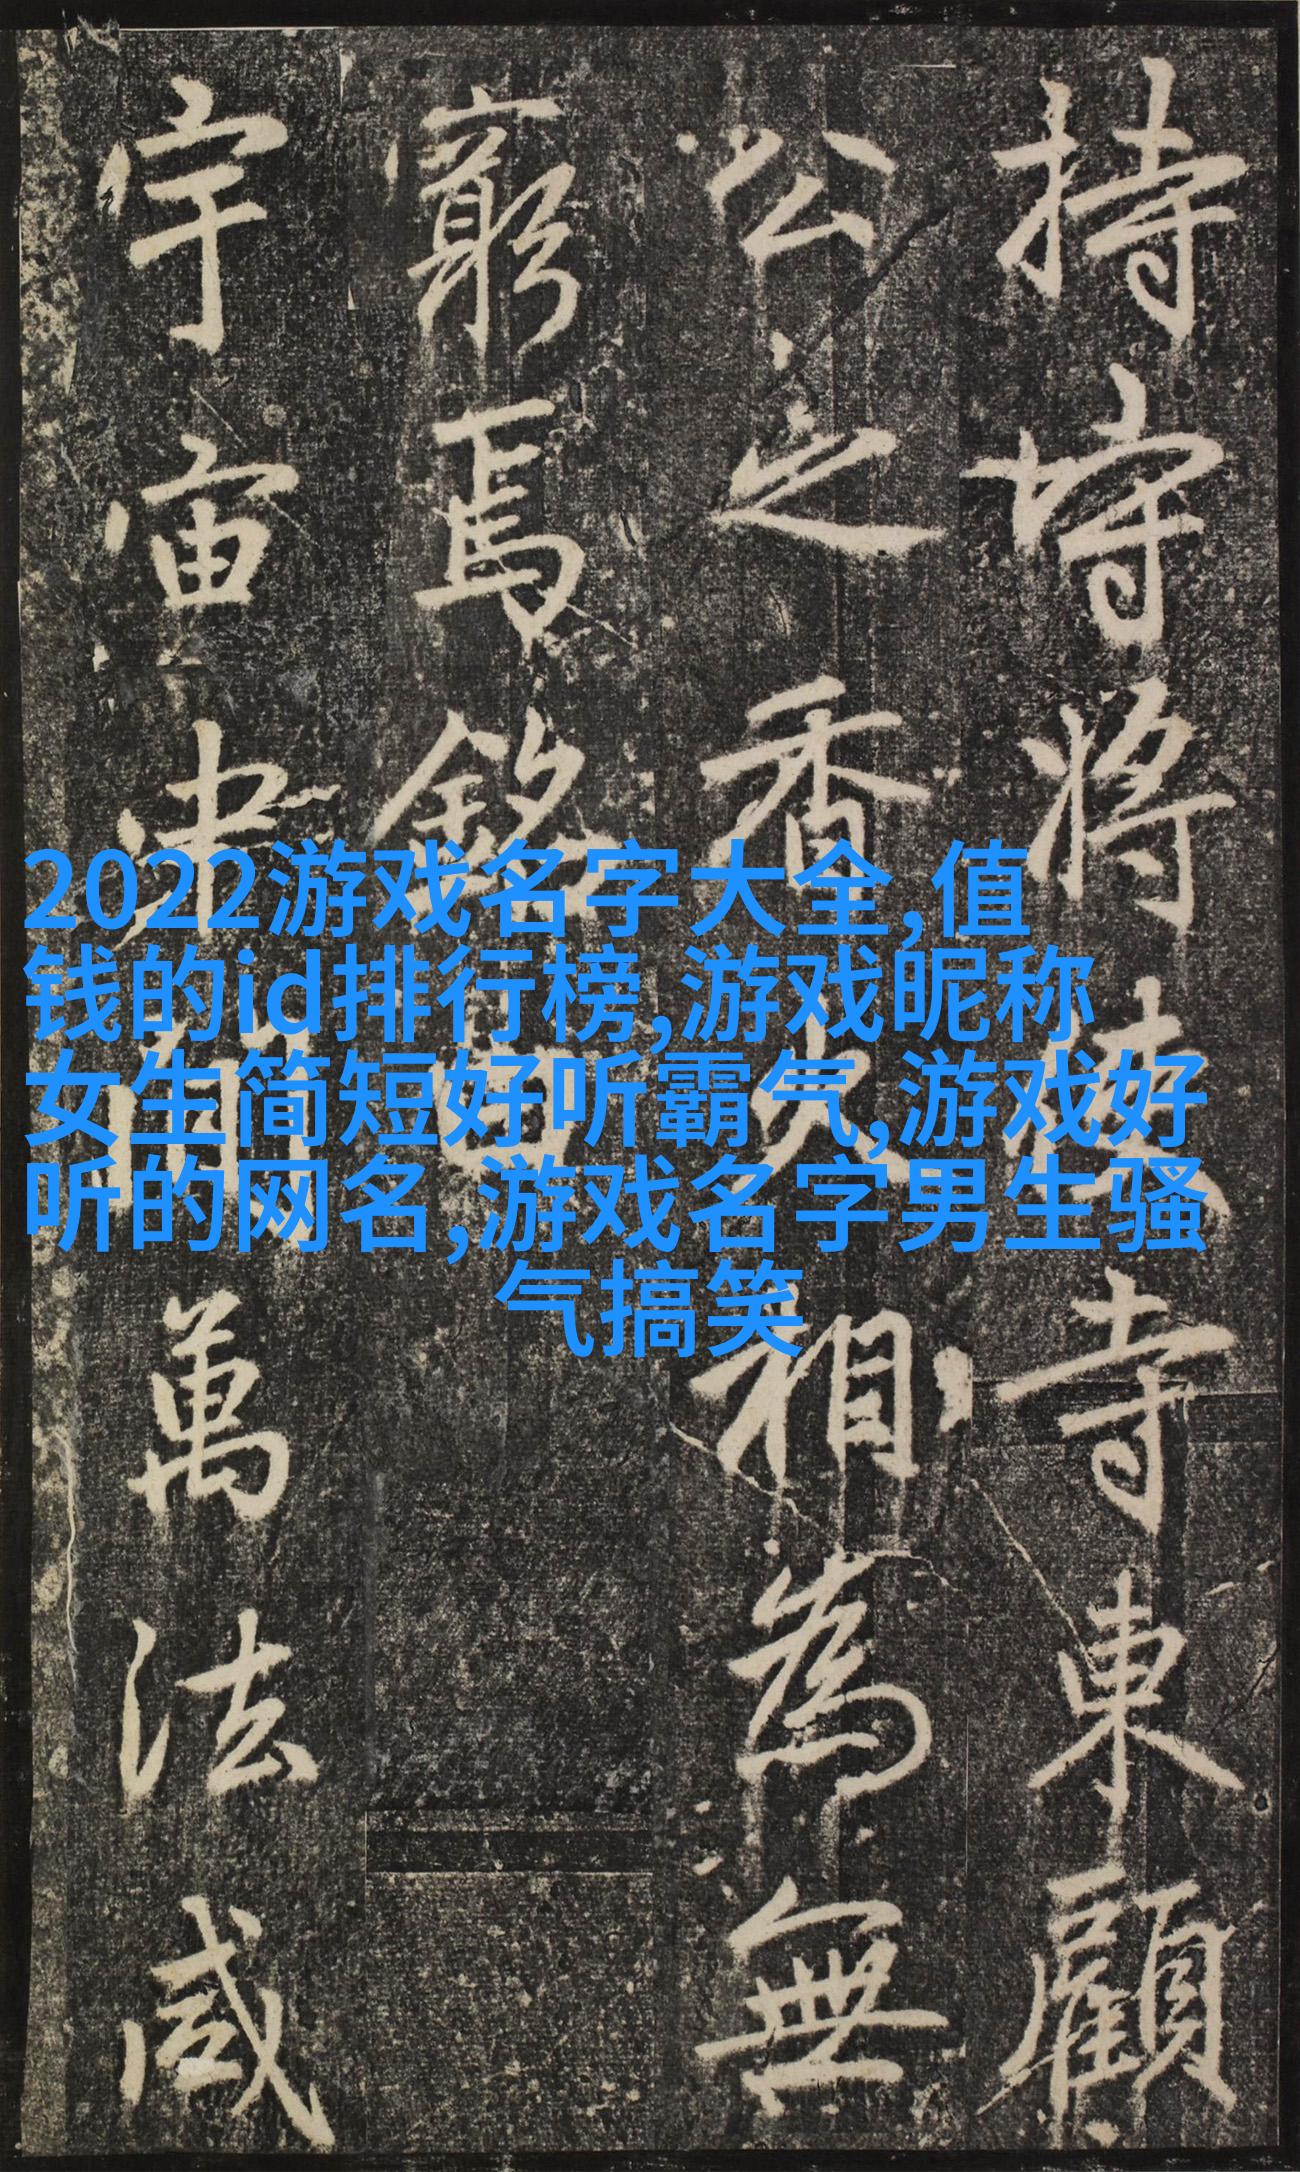 持守將寺東顧
公之香火相為無
窮焉銘曰
宇宙間萬法咸
2022游戏名字大全,值
钱的id排行榜,游戏昵称
女生简短好听霸气,游戏好
听的网名,游戏名字男生骚
气搞笑